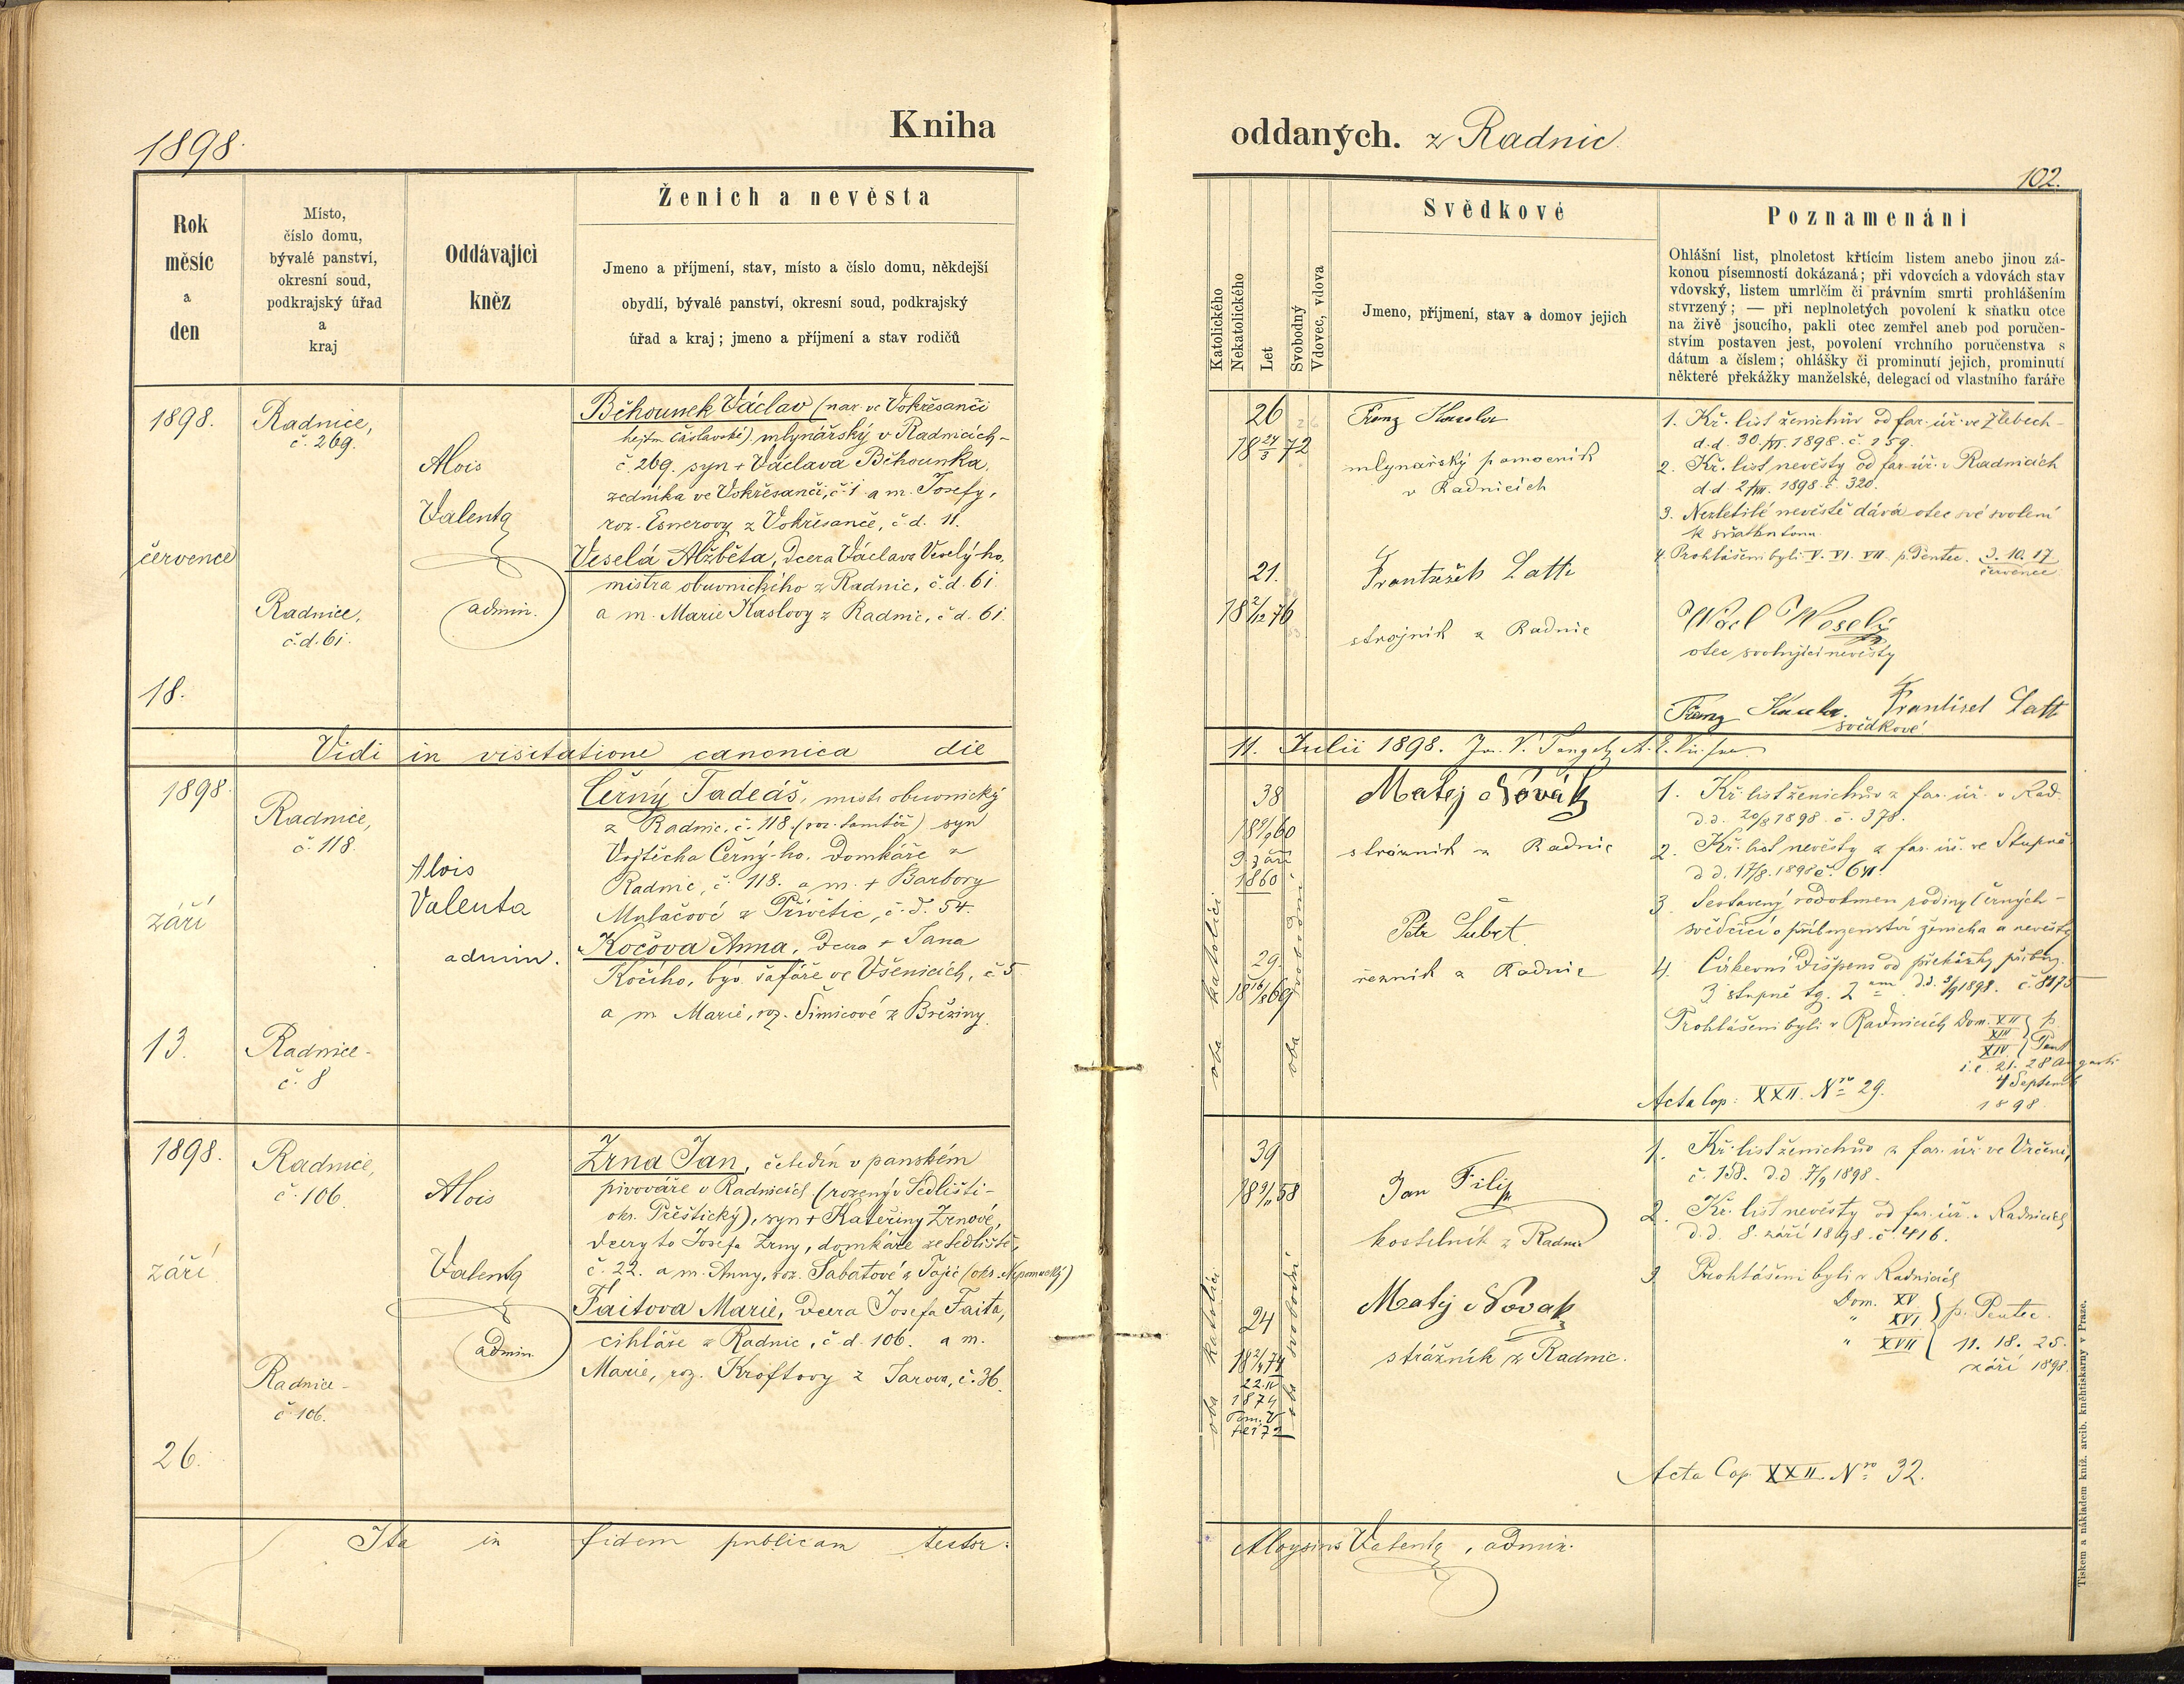 1898.
Kniha
Rok
měsíc
a
den
Místo,
číslo domu,
bývalé panství,
okresní soud,
podkrajský úřad
a
kraj
Oddávající
kněz
Ženich a nevěsta
Jmeno a příjmení, stav, místo a číslo domu, někdejší
obydlí, bývalé panství, okresní soud, podkrajský
úřad a kraj; jmeno a příjmení a stav rodičů
1898.
července
18.
Radnice,
č. 269.
Radnice,
č.d. 61.
Alois
Valenta
admin.
Běhounek Václav (nar. ve Vokřesanči
hejtm. čáslavské) mlynářský v Radnicích
č. 269. syn + Václava Běhounka,
zedníka ve Vokřesanči, č. 1 a m. Josefy,
roz. Esnerovy z Vokřesanče, č.d. 11.
Veselá Alžběta, dcera Václava Veselý-ho,
mistra obuvnického z Radnic, č.d. 61
a m. Marie Kaslovy z Radnic, č.d. 61.
Vidi in visitatione canonica die
1898.
září
13.
Radnice,
č. 118.
Radnice
č. 8
Alois
Valenta
admin.
Černý Tadeáš, mistr obuvnický
z Radnic, č. 118. (roz. tamtéž) syn
Vojtěcha Černý-ho, domkáře z
Radnic, č. 118. a m. + Barbory
z Přívětic, č.d. 54.
Kočova Anna, dcera + Jana
Kočího, býv. šafáře ve Všenicích, č 5
a m. Marie, roz. Šimicové z Březiny.
1898.
září
26.
Radnice,
č. 106.
Radnice
č. 106.
Alois
Valenta
admin.
Zrna Jan, čeledín v panském
pivováře v Radnicích (rozený v Sedlišti
okr. Přeštický), syn + Kateřiny Zrnové,
dcery to Josefa Zrny, domkáře ze Sedliště,
č. 22. a m. Anny, roz. Šabatové z (okr. Nepomucký)
Faitova Marie, dcera Josefa Faita,
cihláře z Radnic, č d. 106. a m.
Marie, roz. Kroftovy z Jarova, č. 36.
Ita in fidem publicam testor:
oddaných. z Radnic
102.
Katolického
Nekatolického
Let
Svobodný
Vdovec, vdova
Svědkové
Jmeno, příjmení, stav a domov jejich
Poznamenání
Ohlášní list, plnoletost křtícím listem anebo jinou zá-
konou písemností dokázaná; při vdovcích a vdovách stav
vdovský, listem umrlčím či právním smrti prohlášením
stvrzený; — při neplnoletých povolení k sňatku otce
na živě jsoucího, pakli otec zemřel aneb pod poručen-
stvím postaven jest, povolení vrchního poručenstva s
dátum a číslem; ohlášky či prominutí jejich, prominutí
některé překážky manželské, delegací od vlastního faráře
26
18 24/3 72
21.
18 2/12 76
Franz
mlynařský pomocník
v Radnicích
František Latt
strojník z Radnic
1. Kř. list ženichův od far. úř. ve Zlebech
d.d. 30./VI. 1898. č. 159.
2. Kř. list nevěsty od far. úř. v Radnicích
d.d. 2/VII. 1898. č. 320.
3. Nezletilé nevěstě dává otec své svolení
k sňatku tomu.
4. Prohlášeni byli V. VI. VII. p. Pentec. 3. 10. 17
července.
Wácl Weselý
otec svolující nevěsty
Franz František Latt
svědkové
11. Julii 1898.
38
18 9/9 60
9 září
1860
29
18 16/8 69
oba katolíci
oba svobodní
Matej Novák
strážník z Radnic
Petr Šubrt
řezník z Radnic
1. Kř. list ženichův z far. úř. v Rad.
d.d. 20/8 1898. č. 378.
2. Kř. list nevěsty z far. úř. ve Stupně
d d. 17/8. 1898 č. 641.
3. Sestavený rodokmen rodiny Černých
svědčící o příbuzenství ženicha a nevěsty
4. Církevní dišpens od překážky příbuz.
3 stupně tg. 2 d.d. 3/9 1898. č. 8175
Prohlášeni byli v Radnicích Dom. XII
XIII p.
XIV. Pent
i.e. 21. 28 Augusti
4 Septemb
1898.
Acta Cop: XXII. Nro 29.
39
18 9/11 58
24
18 21/4 74
22. IV
1874
Tom. V
fol 72
oba katolíci
oba svobodní
Jan Filip
kostelník z Radnic
Matěj Novak
strážník z Radnic.
1. Kř. list ženichův z far. úř. ve Vrčeni,
č. 158. d.d. 7/9 1898.
2. Kř. list nevěsty od far. úř. v Radnicích
d.d. 8. září 1898. č. 416.
3 Prohlášeni byli v Radnicích
Dom. XV.
" XVI p. Pentec.
" XVII 11. 18. 25.
září 1898.
Acta Cop. XXII. Nro 32.
Aloysius Valenta, admin.
Tiskem a nákladem kníž. arcib. kněhtiskárny v Praze.